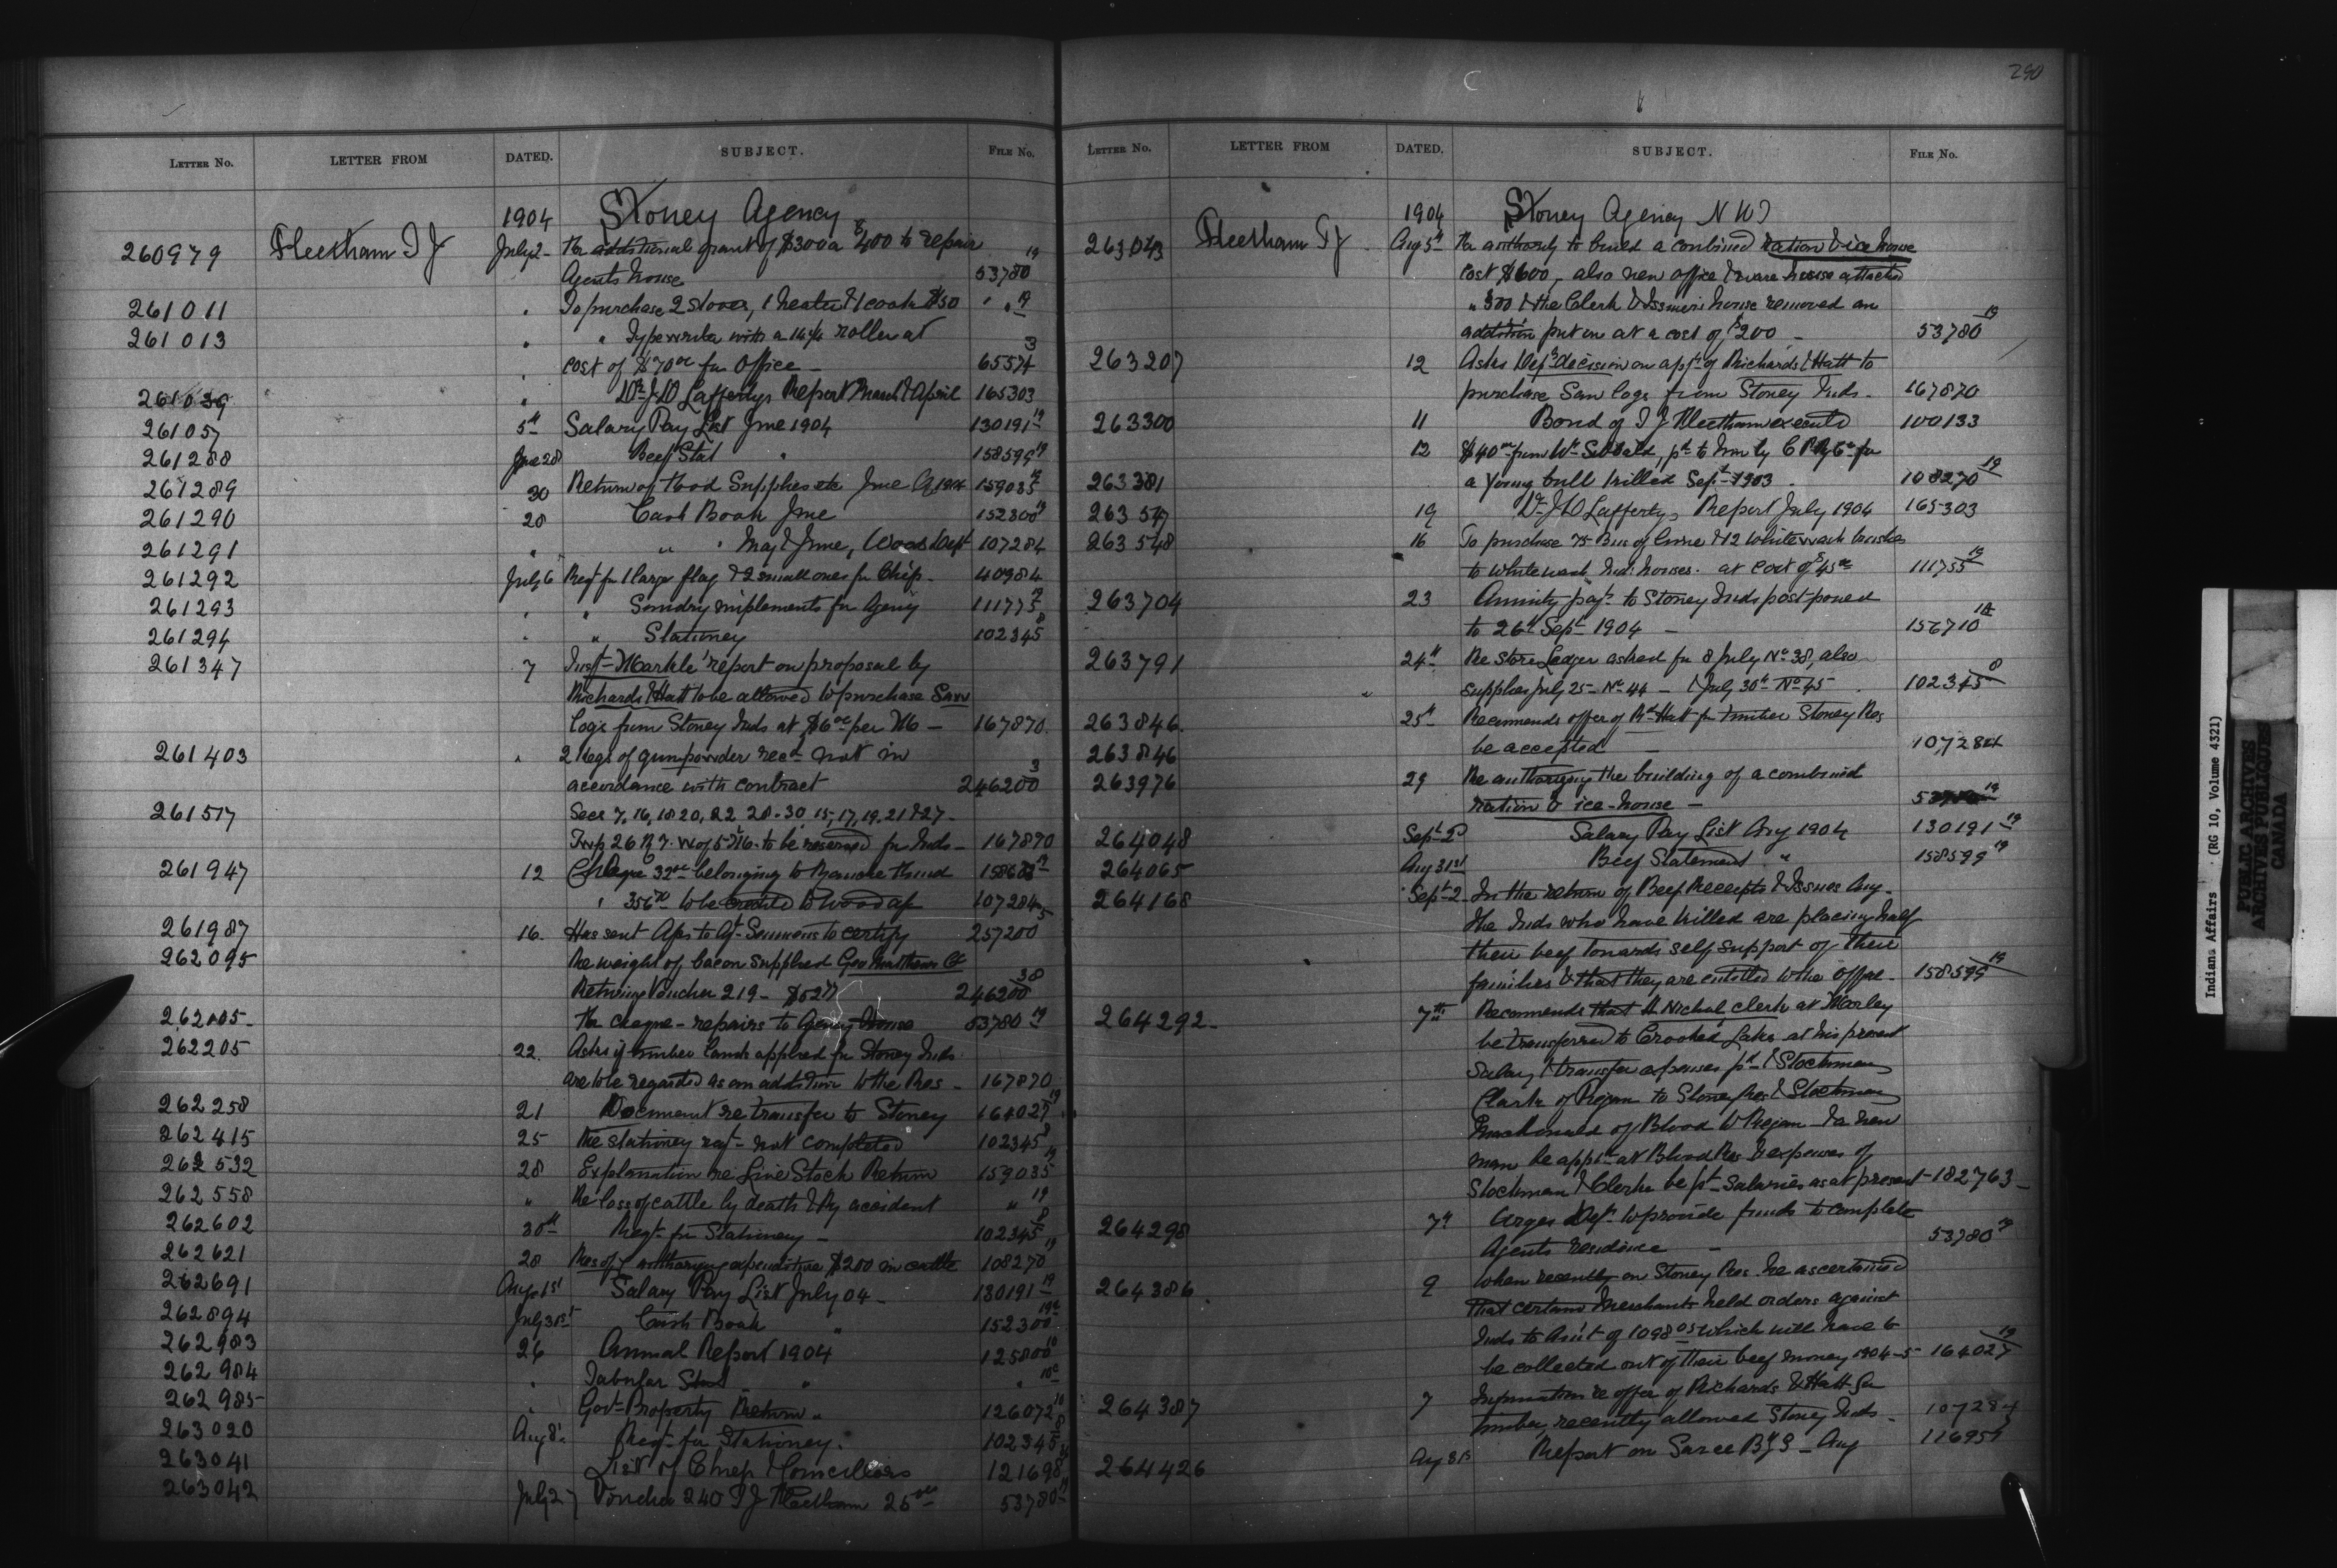 290
LETTER No. LETTER FROM DATED. SUBJECT. FILE No.
1904 Stoney Agency
260979 Fleetham T J July 2 Re additional grant of $300 a $400 to repair
Agents house 53780 19
261011 " To purchase 2 stoves, 1 heater & 1 cook $50 " " 19
261013 " " Typewriter with a 14 roller at 3
cost of $70 00 for Office 65574
261039 " Dr J D Laffertys Report March & April 165303
261057 5th Salary Pay List June 1904 130191 19
261288 June 28 Beef Stat " 158599 19
261289 30 Return of Food Supplies etc June 159035 19
261290 28 Cash Book June 152300 19
261291 " " " May & June, Woods Dept 107284
261292 July 6 Reqt for 1 large flag & 2 small ones for Chip. 40984
261293 " " Sundry implements for Agency 111775 19
261294 " " Stationey 102345 8
261347 7 Inspt Markle's report on proposal by
Richards & Hatt to be allowed to purchase Saw
logs from Stoney Inds at $6 00 per M 167870
261403 " 2 kegs of gunpowder recd not in 3
accordance with contract 246200
261517 Secs 7, 16, 18 20, 22 28-30 15, 17, 19, 21 & 27
Twp 26 R 7. W of 5 M. to be reserved for Inds 167870
261947 12 Cheque 32 00 belonging to Ranche thund
" 356 to be credited to Wood a/c 107284
261987 16. Has sent Aps to Agt Semmens to certify 257200
262095 Re weight of bacon supplied Geo Matthews Co
Retiring Voucher 219 - 246200 38
262105 Re cheque - repairs to Agency House 53780 19
262205 22. Asks if timber lands applied for Stoney Inds
are to be regarded as an addition to the Res - 167870
262258 21 Document re transfer to Stoney 164027 19
262415 25 Re stationey reqt - not completed 102345 8
262532 28 Explanation re Live Stock Return 159035 19
262558 " Re loss of cattle by death & by accident " 19
262602 30th Reqt for Stationey - 102345 8
262621 28 Res of authorizing expenditure $200 in cattle 108270 19
262691 Aug 1st Salary Pay List July 04 - 130191 19
262894 July 31st Cash Book " 152300 19
262983 26 Annual Report 1904 125800 10
262984 " Tabular Stat " " 10
262985 " Govt Property Return " 126072 10
263020 Aug 8 Reqt for Stationey. 102345 8
263041 List of Chief & Councillors 121698
263042 July 27 Voucher 240 T J Fleetham 25 00 53780 19
LETTER No. LETTER FROM DATED. SUBJECT. FILE No.
1904 Stoney Agency N W T
263043 Fleetham T J Aug 5th Re authority to build a combined ration & ice house
cost $600, also new office & ware house attached
" 300 & the Clerk & Issuers house removed an
addition put on at a cost of $200 - 53780 19
263207 12 Asks Depts decision on appn of Richards & Hatt to
purchase Saw logs from Stoney Inds - 167870
263300 11 Bond of T J Fleetham execute 100133
12 $40 00 from Wm Sibbald, pd to him by C P Ry Co for
263381 a young bull killed Sept 1903 108270 19
263547 19 Dr J D Laffertys Report July 1904 165303
263548 16 To purchase 75 Bus of lime & 12 Whitewash brushes
to whitewash Inds houses. at cost of $45 00 111755 19
263704 23 Annuity payt to Stoney Inds postponed
to 26th Sept 1904 - 156710
263791 24th Re Store Ledger asked for 8 July No 38, also
" supplies July 25 - No 44 - & July 30th No 45 102345 8
263846. 25th Recommends offer of Rd Hatt for timber Stoney Res
263846 be accepted - 107284
263976 29 Re authorizing the building of a combined
ration & ice-house -
264048 Sept 2 Salary Pay List Aug 1904 130191 19
264065 Aug 31st Beef Statement " 158599 19
264168 Sept 2 In the return of Beef Receipts & Issues Aug.
the Inds who have killed are placing half
their beef towards self support of their
families & that they are entitled to the offal - 158599 19
264292 - 7th Recommends that H Nichol, clerk at Morley
be transferred to Crooked Lakes at his present
Salary & transfer expenses pd & Stockman
Clark of Piegan to Stoney Res & Stockman
MacDonald of Blood to Piegan - & a new
man be apptd at Blood Res & expenses of
Stockman & Clerk be pd - Salaries as at present - 182763 -
264298 7th Urges Dept to provide funds to complete
Agents residence - 53780 19
264386 9 When recently on Stoney Res. he ascertained
that certain Merchants held orders against
Inds to Am't of 1098 05 which will have to
be collected out of their beef money 1904-5 164027 19
264387 7 Information re offer of Richards & Hatt for
timber, recently allowed Stoney Inds - 107284
264426 Aug 31 Report on Sarcee Bdg S - Aug 116951
Indians Affairs (RG 10, Volume 4321)
PUBLIC ARCHIVES
ARCHIVES PUBLIQUES
CANADA